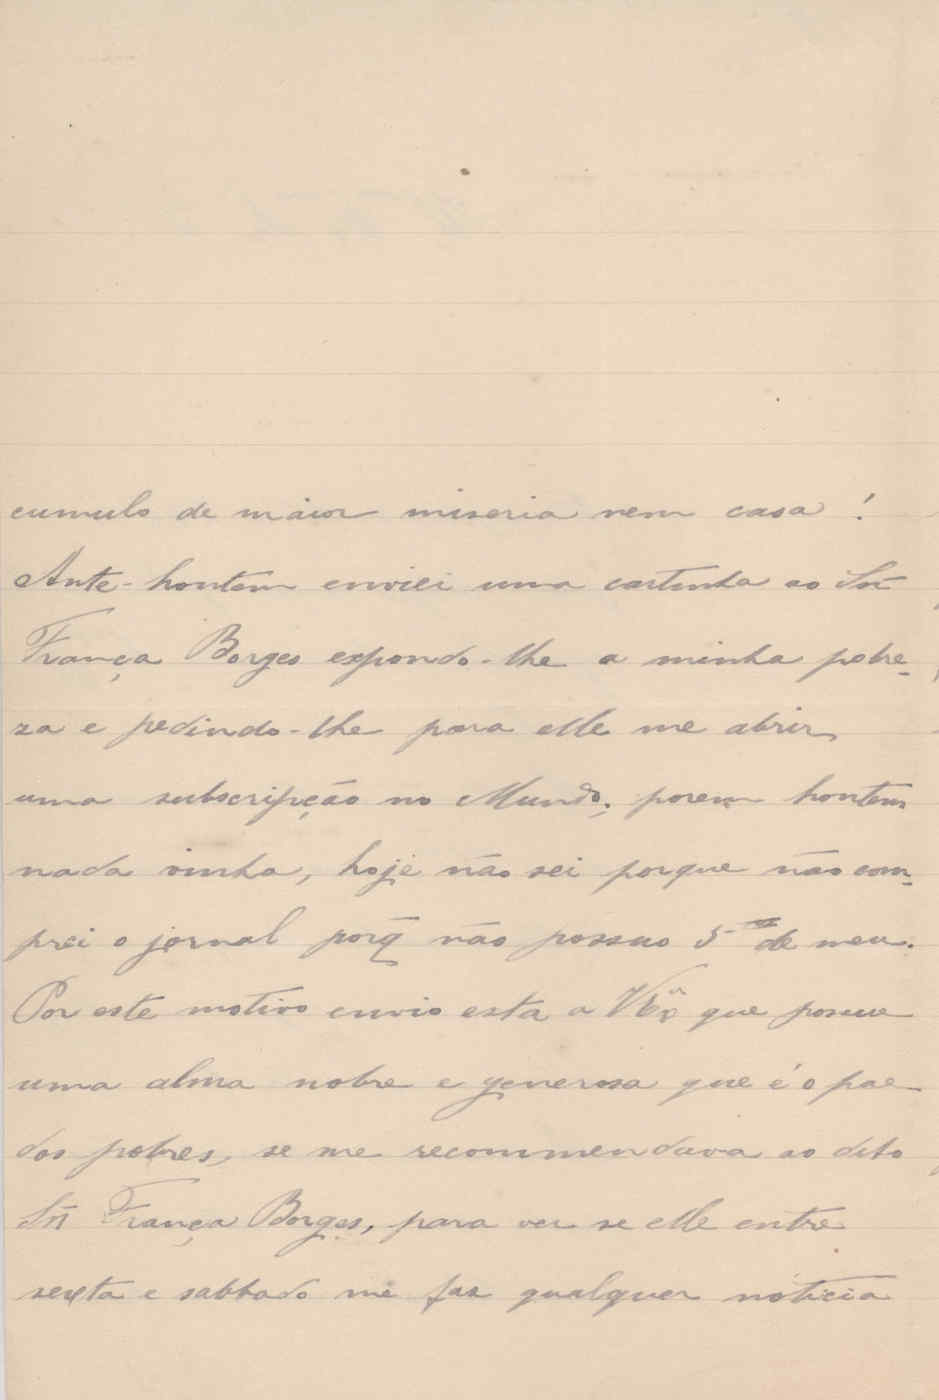 cumulo de maior miseria nem casa!
Ante-hontem enviei uma cartinha ao Snr
França Borges expondo-lhe a minha pobre-
za e pedindo-lhe para elle me abrir
uma subscripção no Mundo; porem hontem
nada vinha, hoje não sei porque não com-
prei o jornal porq̃ não possuo 5 de meu.
Por este motivo envio esta a V. Exª que possue
uma alma nobre e generosa que é o pae
dos pobres, se me recommendava ao dito
Snr França Borges, para ver se elle entre
sexta e sabbado me faz qualquer noticia